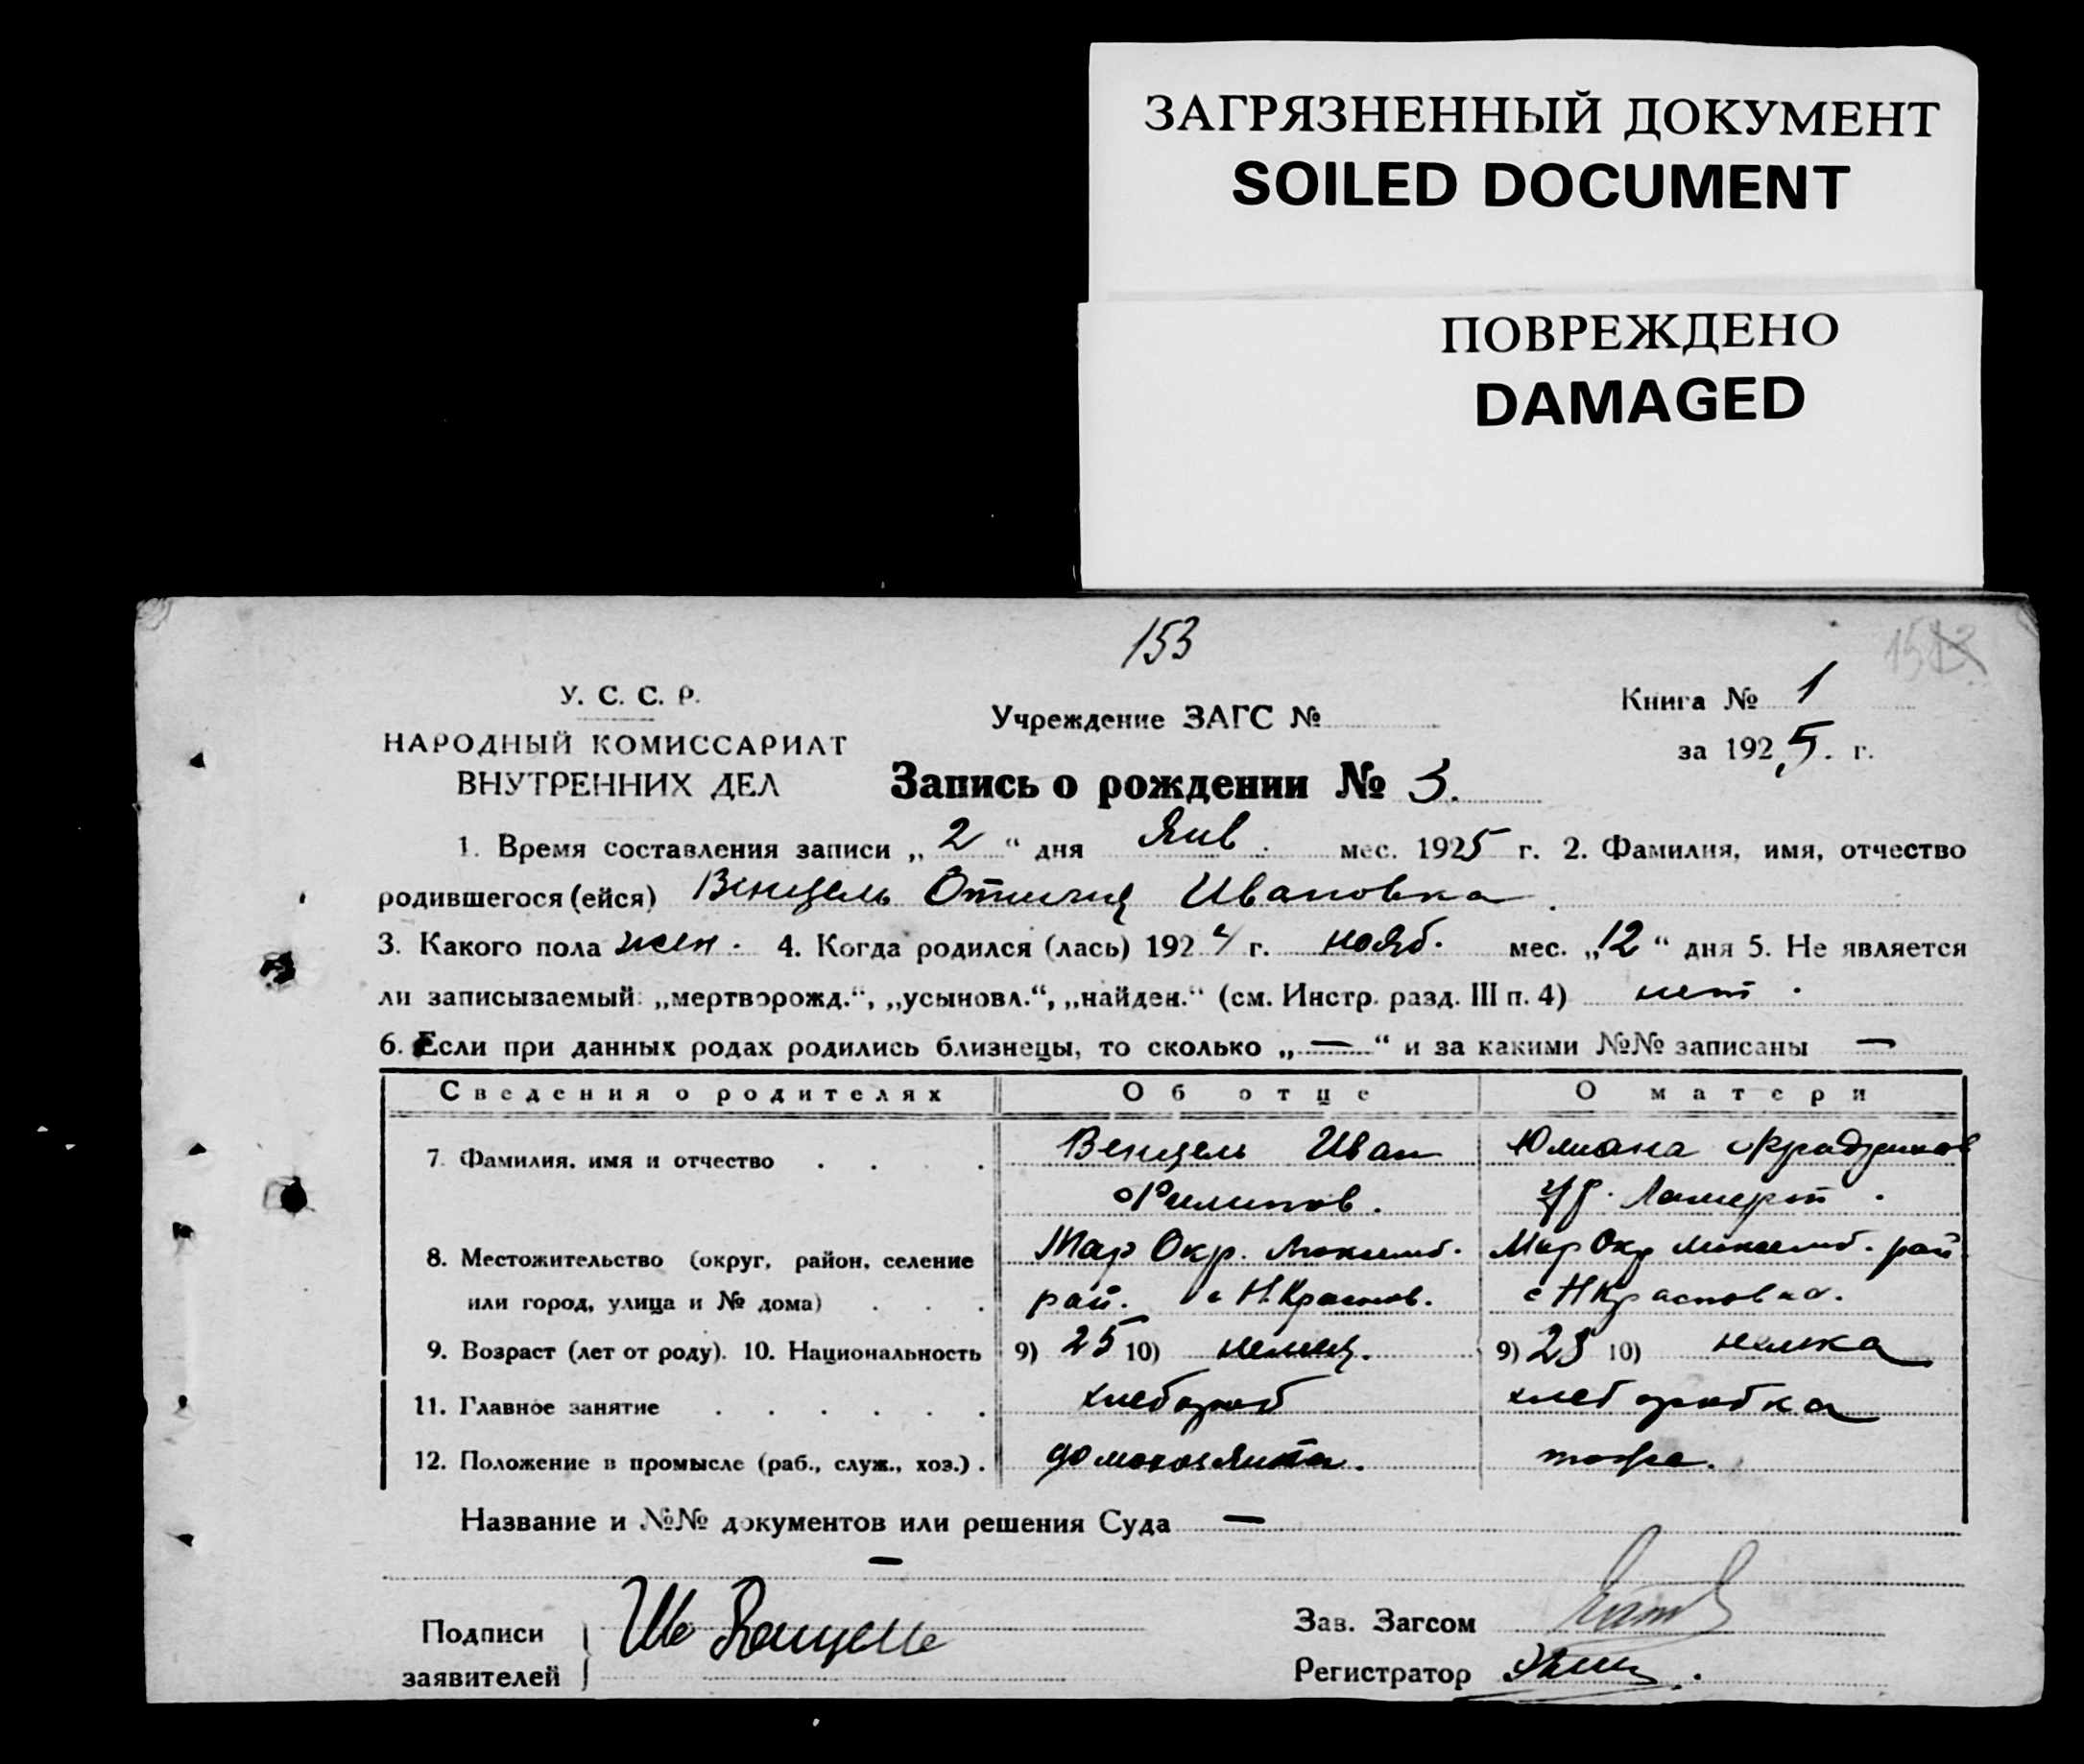 ЗАГРЯЗНЕННЫЙ ДОКУМЕНТ
SOILED DOCUMENT
ПОВРЕЖДЕНО
DAMAGED
153
У. С. С. Р.
Книга № 1
Учреждение ЗАГС №
НАРОДНЫЙ КОМИССАРИАТ
за 1925. г.
ВНУТРЕННИХ ДЕЛ
Запись о рождении № 3.
1. Время составления записи „ 2 “ дня Янв. мес. 1925 г. 2. Фамилия, имя, отчество
родившегося (ейся) Венцель Ивановна.
3. Какого пола жен. 4. Когда родился (лась) 1924 г. нояб. мес. „12“ дня 5. Не является
ли записываемый: „мертворожд.“, „усыновл.“, „найден.“ (см. Инстр. разд. III п. 4) нет.
6. Если при данных родах родились близнецы, то сколько „—“ и за какими №№ записаны —
Сведения о родителях Об отце О матери
7. Фамилия, имя и отчество Венцель Иван Юлиана
Филипов.
8. Местожительство (округ, район, селение Мар Окр. Мар Окр рай.
или город, улица и № дома) рай. с Н. с Н
9. Возраст (лет от роду). 10. Национальность 9) 25 10) немец. 9) 10) немка
11. Главное занятие хлебороб хлеборобка
12. Положение в промысле (раб., служ., хоз.)
Название и №№ документов или решения Суда —
—
Подписи
заявителей
Зав. Загсом
Регистратор